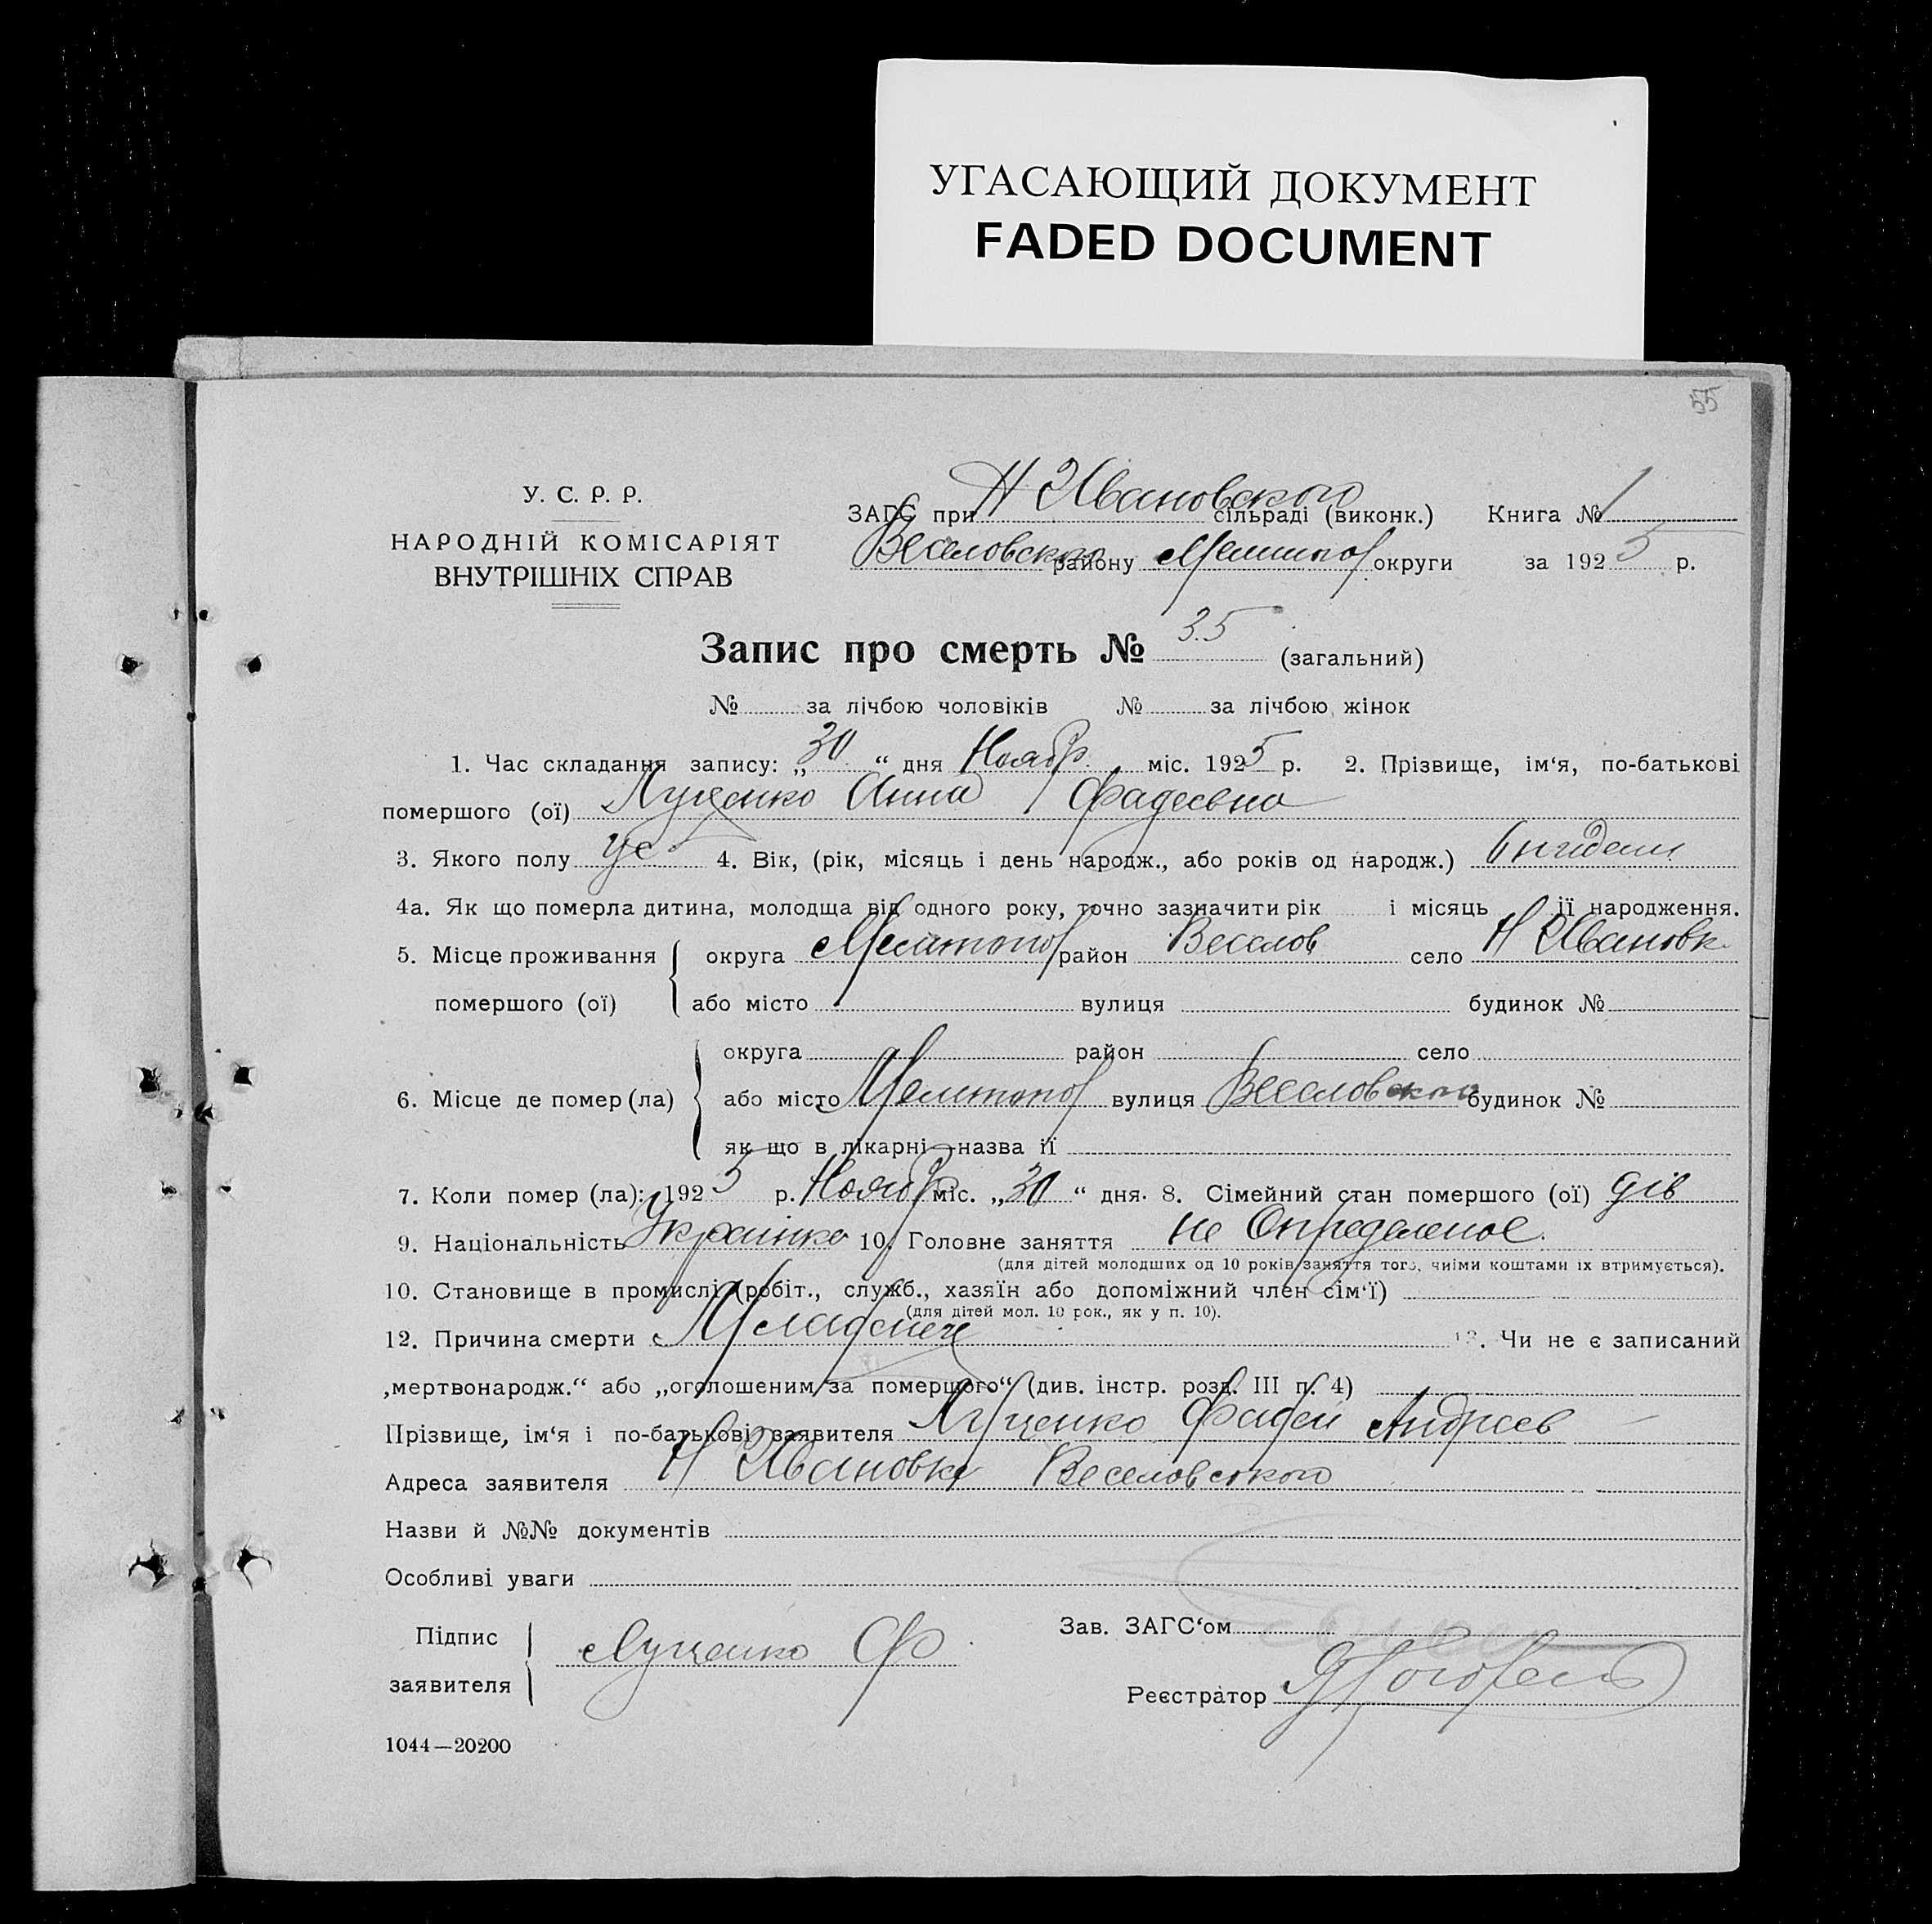 УГАСАЮЩИЙ ДОКУМЕНТ
FADED DOCUMENT
55
У. С. Р. Р.
НАРОДНІЙ КОМІСАРІЯТ
ВНУТРІШНІХ СПРАВ
ЗАГС при Н Ивановского сільраді (виконк.) Книга № 1
Веселовского району Мелитоп округи за 1925 р.
Запис про смерть № 35 (загальний)
№ за лічбою чоловіків № за лічбою жінок
1. Час складання запису: „30“ дня Ноябр міс. 1925 р. 2. Прізвище, ім‘я, по-батькові
помершого (ої) Луценко Анна Фадеевна
3. Якого полу 4. Вік, (рік, місяць і день народж., або років од народж.) 6 недели
4а. Як що померла дитина, молодша від одного року, точно зазначити рік і місяць її народження.
5. Місце проживання округа Мелитопол район Веселов село Н Ивановк
помершого (ої) або місто вулиця будинок №
округа район село
6. Місце де помер (ла) або місто Мелитопол вулиця Веселовского будинок №
як що в лікарні—назва її
7. Коли помер (ла): 1925 р. Ноябр міс. „30“ дня. 8. Сімейний стан помершого (ої) дів
9. Національність Украінка 10. Головне заняття не Определеное
(для дітей молодших од 10 років заняття того, чиїми коштами їх втримується).
10. Становище в промислі (робіт., служб., хазяїн або допоміжний член сім‘ї)
(для дітей мол. 10 рок., як у п. 10).
12. Причина смерти Младенч 13. Чи не є записаний
„мертвонародж.“ або „оголошеним за помершого“ (див. інстр. розд. III п. 4)
Прізвище, ім‘я і по-батькові заявителя Луценко Фадей Андреев
Адреса заявителя Н Ивановка Веселовского
Назви й №№ документів
Особливі уваги
Підпис
заявителя Луценко Ф
Зав. ЗАГС‘ом
Реєстратор
1044—20200